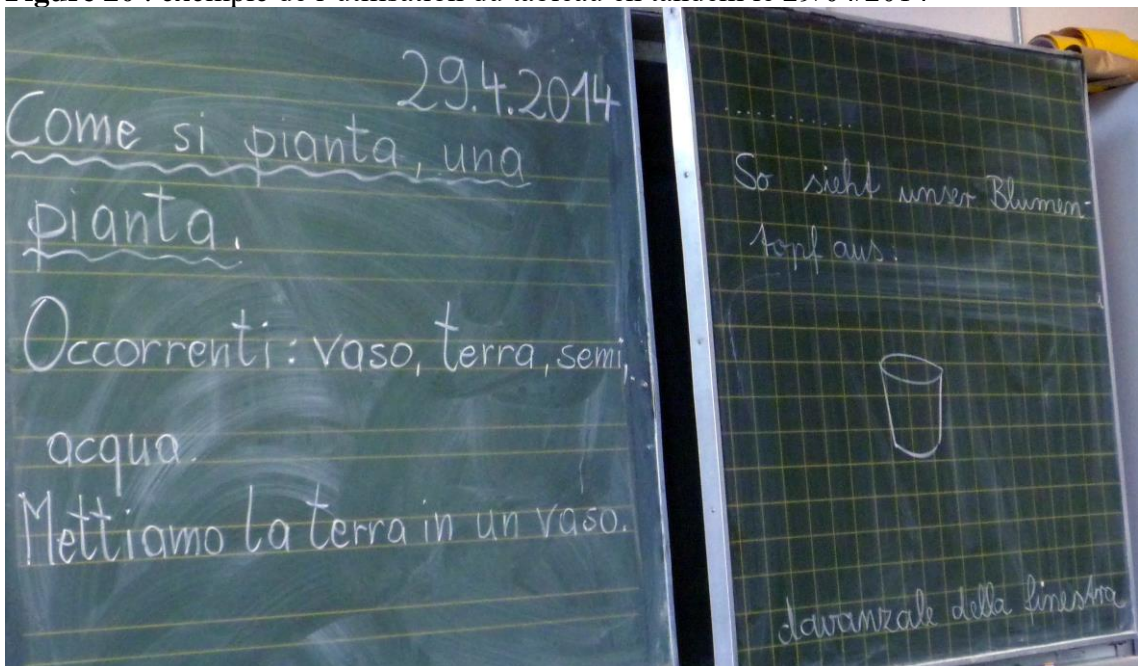 29.4.2014
Come si pianta, una
pianta.
Occorrenti: vaso, terra, semi,
acqua.
Mettiamo la terra in un vaso.
...........
So sieht unser Blumen-
topf aus.
davanzale della finestra